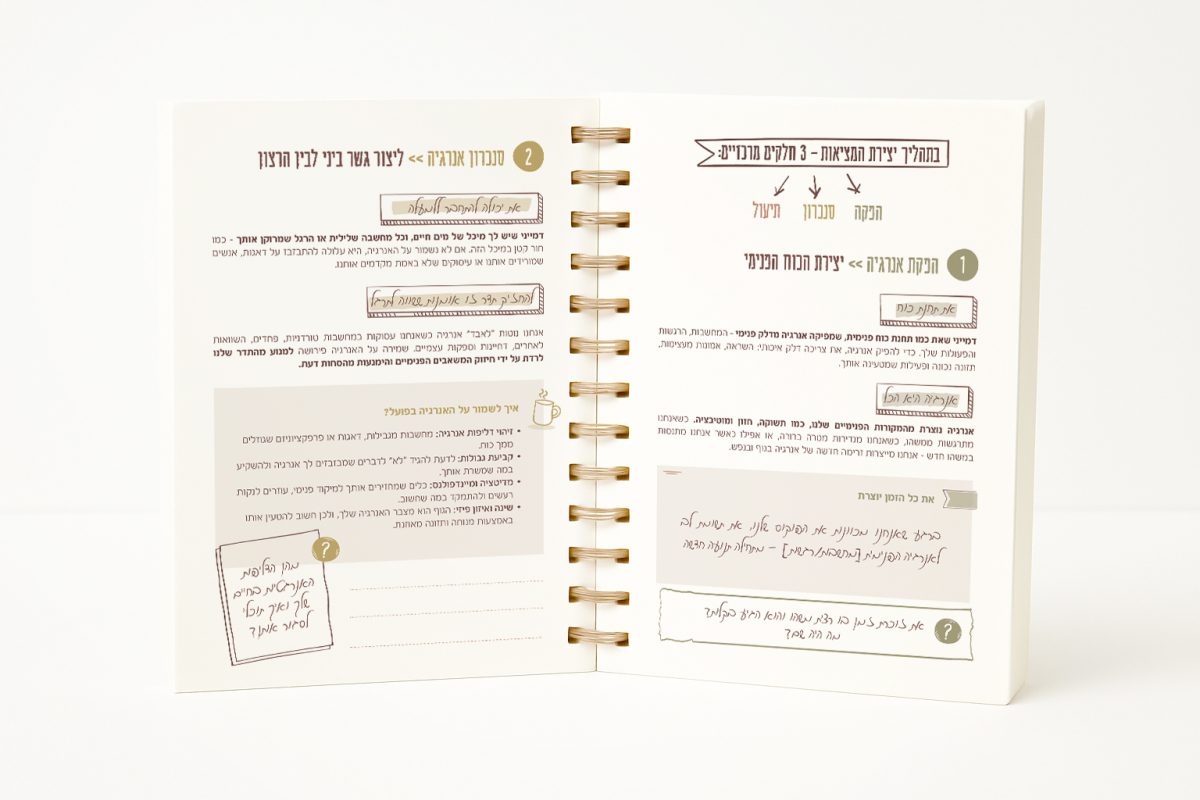 בתהליך יצירת המציאות – 3 חלקים מרכזיים:
הפקה סנכרון תיעול
1 הפקת אנרגיה >> יצירת הכוח הפנימי
את תחנת כוח
דמייני שאת כמו תחנת כוח פנימית, שמפיקה אנרגיה מדלק פנימי - המחשבות, הרגשות
והפעולות שלך. כדי להפיק אנרגיה, את צריכה דלק איכותי: השראה, אמונות מעצימות,
תזונה נכונה ופעילות שמטעינה אותך.
אנרגיה היא הכל
אנרגיה נוצרת מהמקורות הפנימיים שלנו, כמו תשוקה, חזון ומוטיבציה. כשאנחנו
מתרגשות ממשהו, כשאנחנו מגדירות מטרה ברורה, או אפילו כאשר אנחנו מתנסות
במשהו חדש - אנחנו מייצרות זרימה חדשה של אנרגיה בגוף ובנפש.
את כל הזמן יוצרת
ברגע שאנחנו מכוונות את הפוקוס שלנו, את תשומת לב
לאנרגיה הפנימית [מחשבות/רגשות] – מתחילה תנועה חדשה
? את זוכרת זמן בו רצית משהו והוא הגיע בקלות?
מה היה שם?
2 סנכרון אנרגיה >> ליצור גשר ביני לבין הרצון
את יכולה להתחבר ללמעלה
דמייני שיש לך מיכל של מים חיים, וכל מחשבה שלילית או הרגל שמרוקן אותך - כמו
חור קטן במיכל הזה. אם לא נשמור על האנרגיה, היא עלולה להתבזבז על דאגות, אנשים
שמורידים אותנו או עיסוקים שלא באמת מקדמים אותנו.
להחזיק תדר זו אומנות ששווה לתרגל
אנחנו נוטות "לאבד" אנרגיה כשאנחנו עסוקות במחשבות טורדניות, פחדים, השוואות
לאחרים, דחיינות וספקות עצמיים. שמירה על האנרגיה פירושה למנוע מהתדר שלנו
לרדת על ידי חיזוק המשאבים הפנימיים והימנעות מהסחות דעת.
איך לשמור על האנרגיה בפועל?
• זיהוי דליפות אנרגיה: מחשבות מגבילות, דאגות או פרפקציוניזם שגוזלים
ממך כוח.
• קביעת גבולות: לדעת להגיד "לא" לדברים שמבזבזים לך אנרגיה ולהשקיע
במה שמשרת אותך.
• מדיטציה ומיינדפולנס: כלים שמחזירים אותך למיקוד פנימי, עוזרים לנקות
רעשים ולהתמקד במה שחשוב.
• שינה ואיזון פיזי: הגוף הוא מצבר האנרגיה שלך, ולכן חשוב להטעין אותו
באמצעות מנוחה ותזונה מאוזנת.
?
מהן הדליפות
האנרגטיות בחיים
שלך ואיך תוכלי
לסגור אותן?